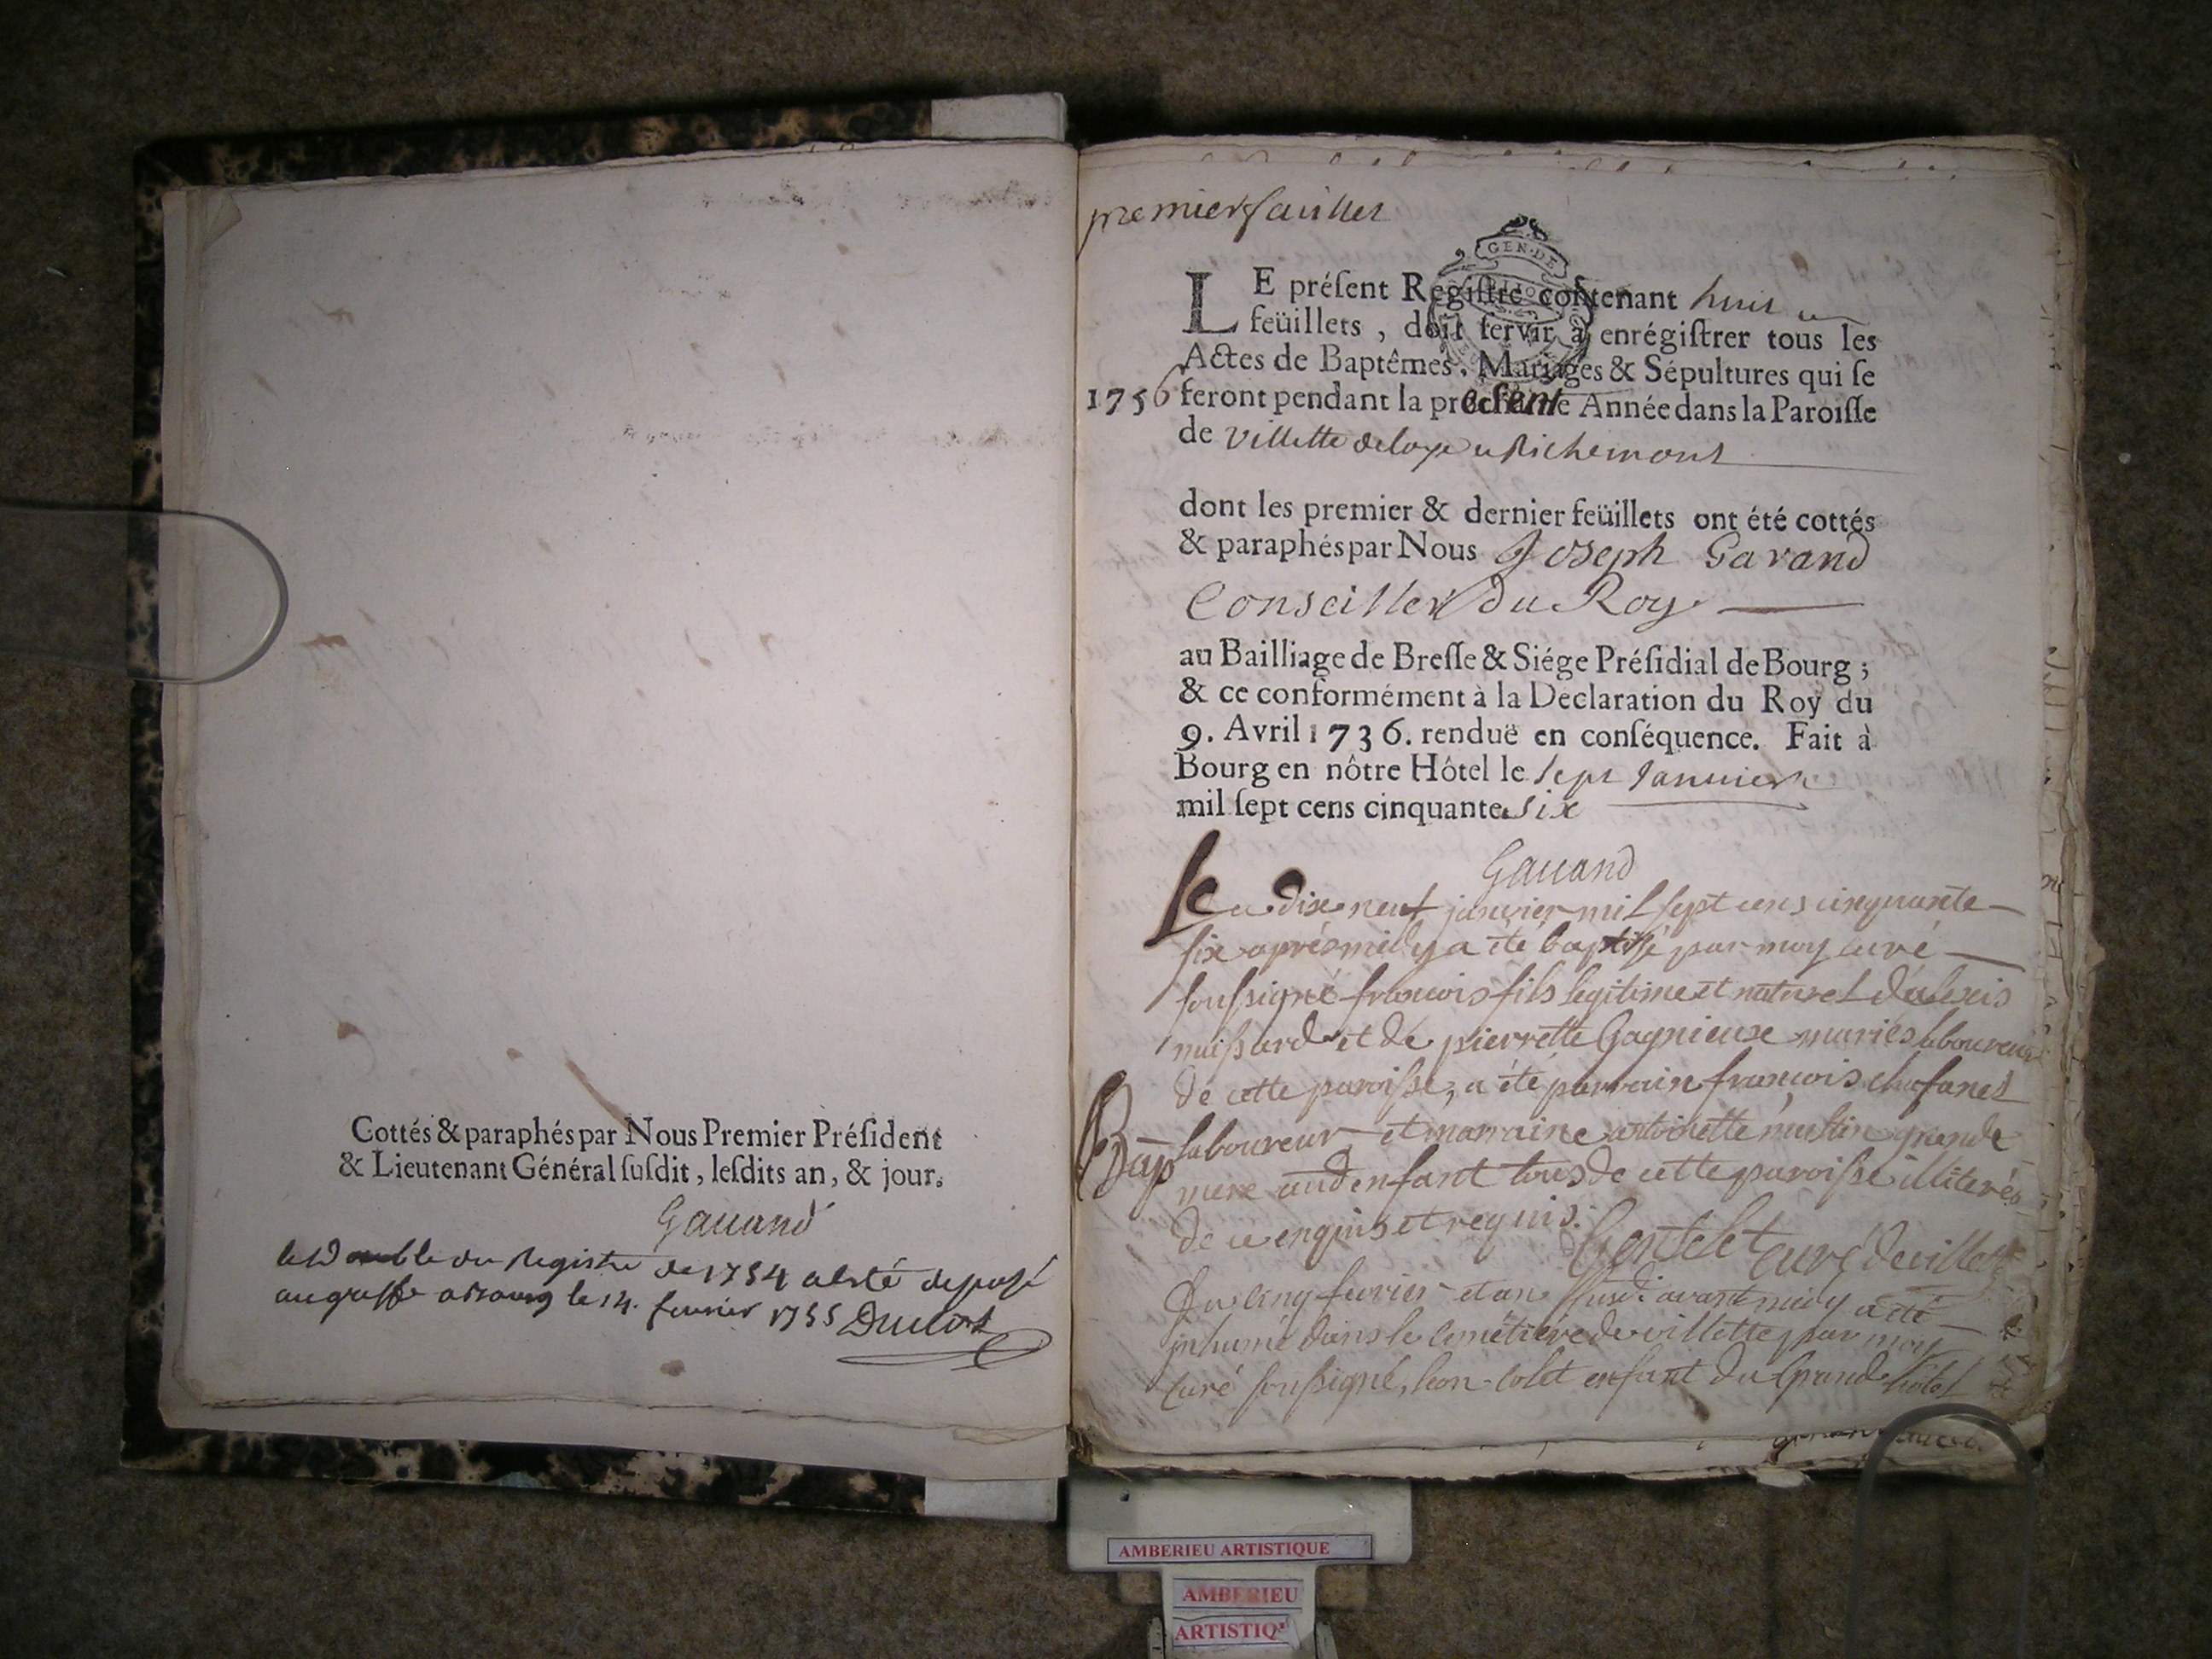 Cottés & paraphés par Nous Premier Préſident
& Lieutenant Général ſuſdit, leſdits an, & jour.
Gauand
le Double du Registre de 1754 a esté deposé
au greffe a Bourg le 14. feurier 1755 Duclos
premier faüillet
GEN. DE
LE préſent Regiſtre contenant huit
feüillets, doit ſervir à enrégiſtrer tous les
Actes de Baptêmes, Mariages & Sépultures qui ſe
1756 feront pendant la présente Année dans la Paroiſſe
de Villette de loye et Richemont
dont les premier & dernier feüillets ont été cottés
& paraphés par Nous Joseph Gavand
Conseiller du Roy
au Bailliage de Breſſe & Siége Préſidial de Bourg;
& ce conformément à la Declaration du Roy du
9. Avril 1736. renduë en conſéquence. Fait à
Bourg en nôtre Hôtel le sept Januier
mil ſept cens cinquante six
Gauand
Le dix neuf janvier mil ſept cens cinquante
ſix apres midy a été baptiſé par moy curé
ſouſsigné francois fils legitime et naturel d'alexis
et de pierrette Gagnieux mariés laboureurs
de cette paroiſse, a été parrain francois chafanel
Bap laboureur et marraine antoinette grande
mere dud enfant tous de cette paroiſse illiterés
de ce enquis et requis.
Gentelet curé de villette
Du cinq fevrier et an ſusd. avant midy a été
inhumé dans le cimetiere de villette par moy
curé ſouſsigné, colet enfant du Grand hotel
AMBERIEU ARTISTIQUE
AMBERIEU
ARTISTIQ